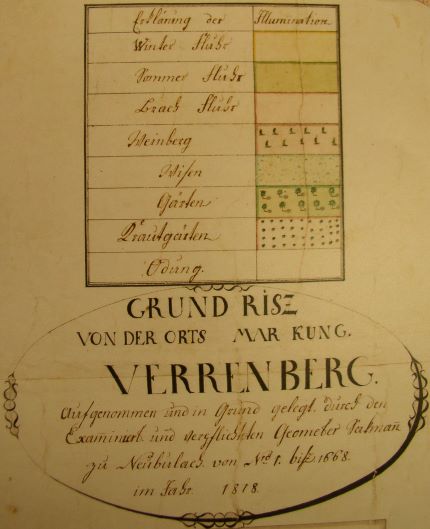 Erklärung der Illumination
Winter Fluhr
Sommer Fluhr
Brach Fluhr
Weinberg
Wisen
Gärten
Krautgärten
Ödung.
GRUND RISZ
VON DER ORTS MAR KUNG.
VERRENBERG.
Aufgenommen und in Grund gelegt durch den
Examiniert und verpflichteten Geometer
zu Neubulach von No. 1. biß 1668.
im Jahr 1818.